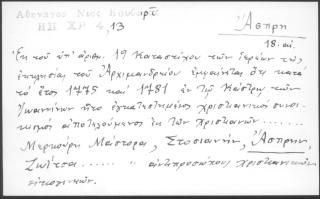 Αθηναγος Νεος Κουβαρᾶς
ΗΠ ΧΡ 4,13
Ἄσπρη
18. αἰ.
Ἐκ τοῦ ὑπ' ἀριθμ. 19 Κατάστιχου τῶν ἱερέων τῆς
ἐκκλησίας τοῦ Ἀρχιμανδρείου ἐμφαίνεται ὅτι κατὰ
τὸ ἔτος 1775 καὶ 1781 ἐν τῷ Κάστρῳ τῶν
Ἰωαννίνων ἦτο ἐγκατεστημένος χριστιανικὸς συνοι-
κισμὸς ἀποτελούμενος ἐκ τῶν Χριστιανῶν......
Μερκούρη Μάστορα, Στογιάννη, Ἄσπρην,
Ζωΐτσα...... ἀντιπροσώπους χριστιανικῶν
οἰκογενειῶν.